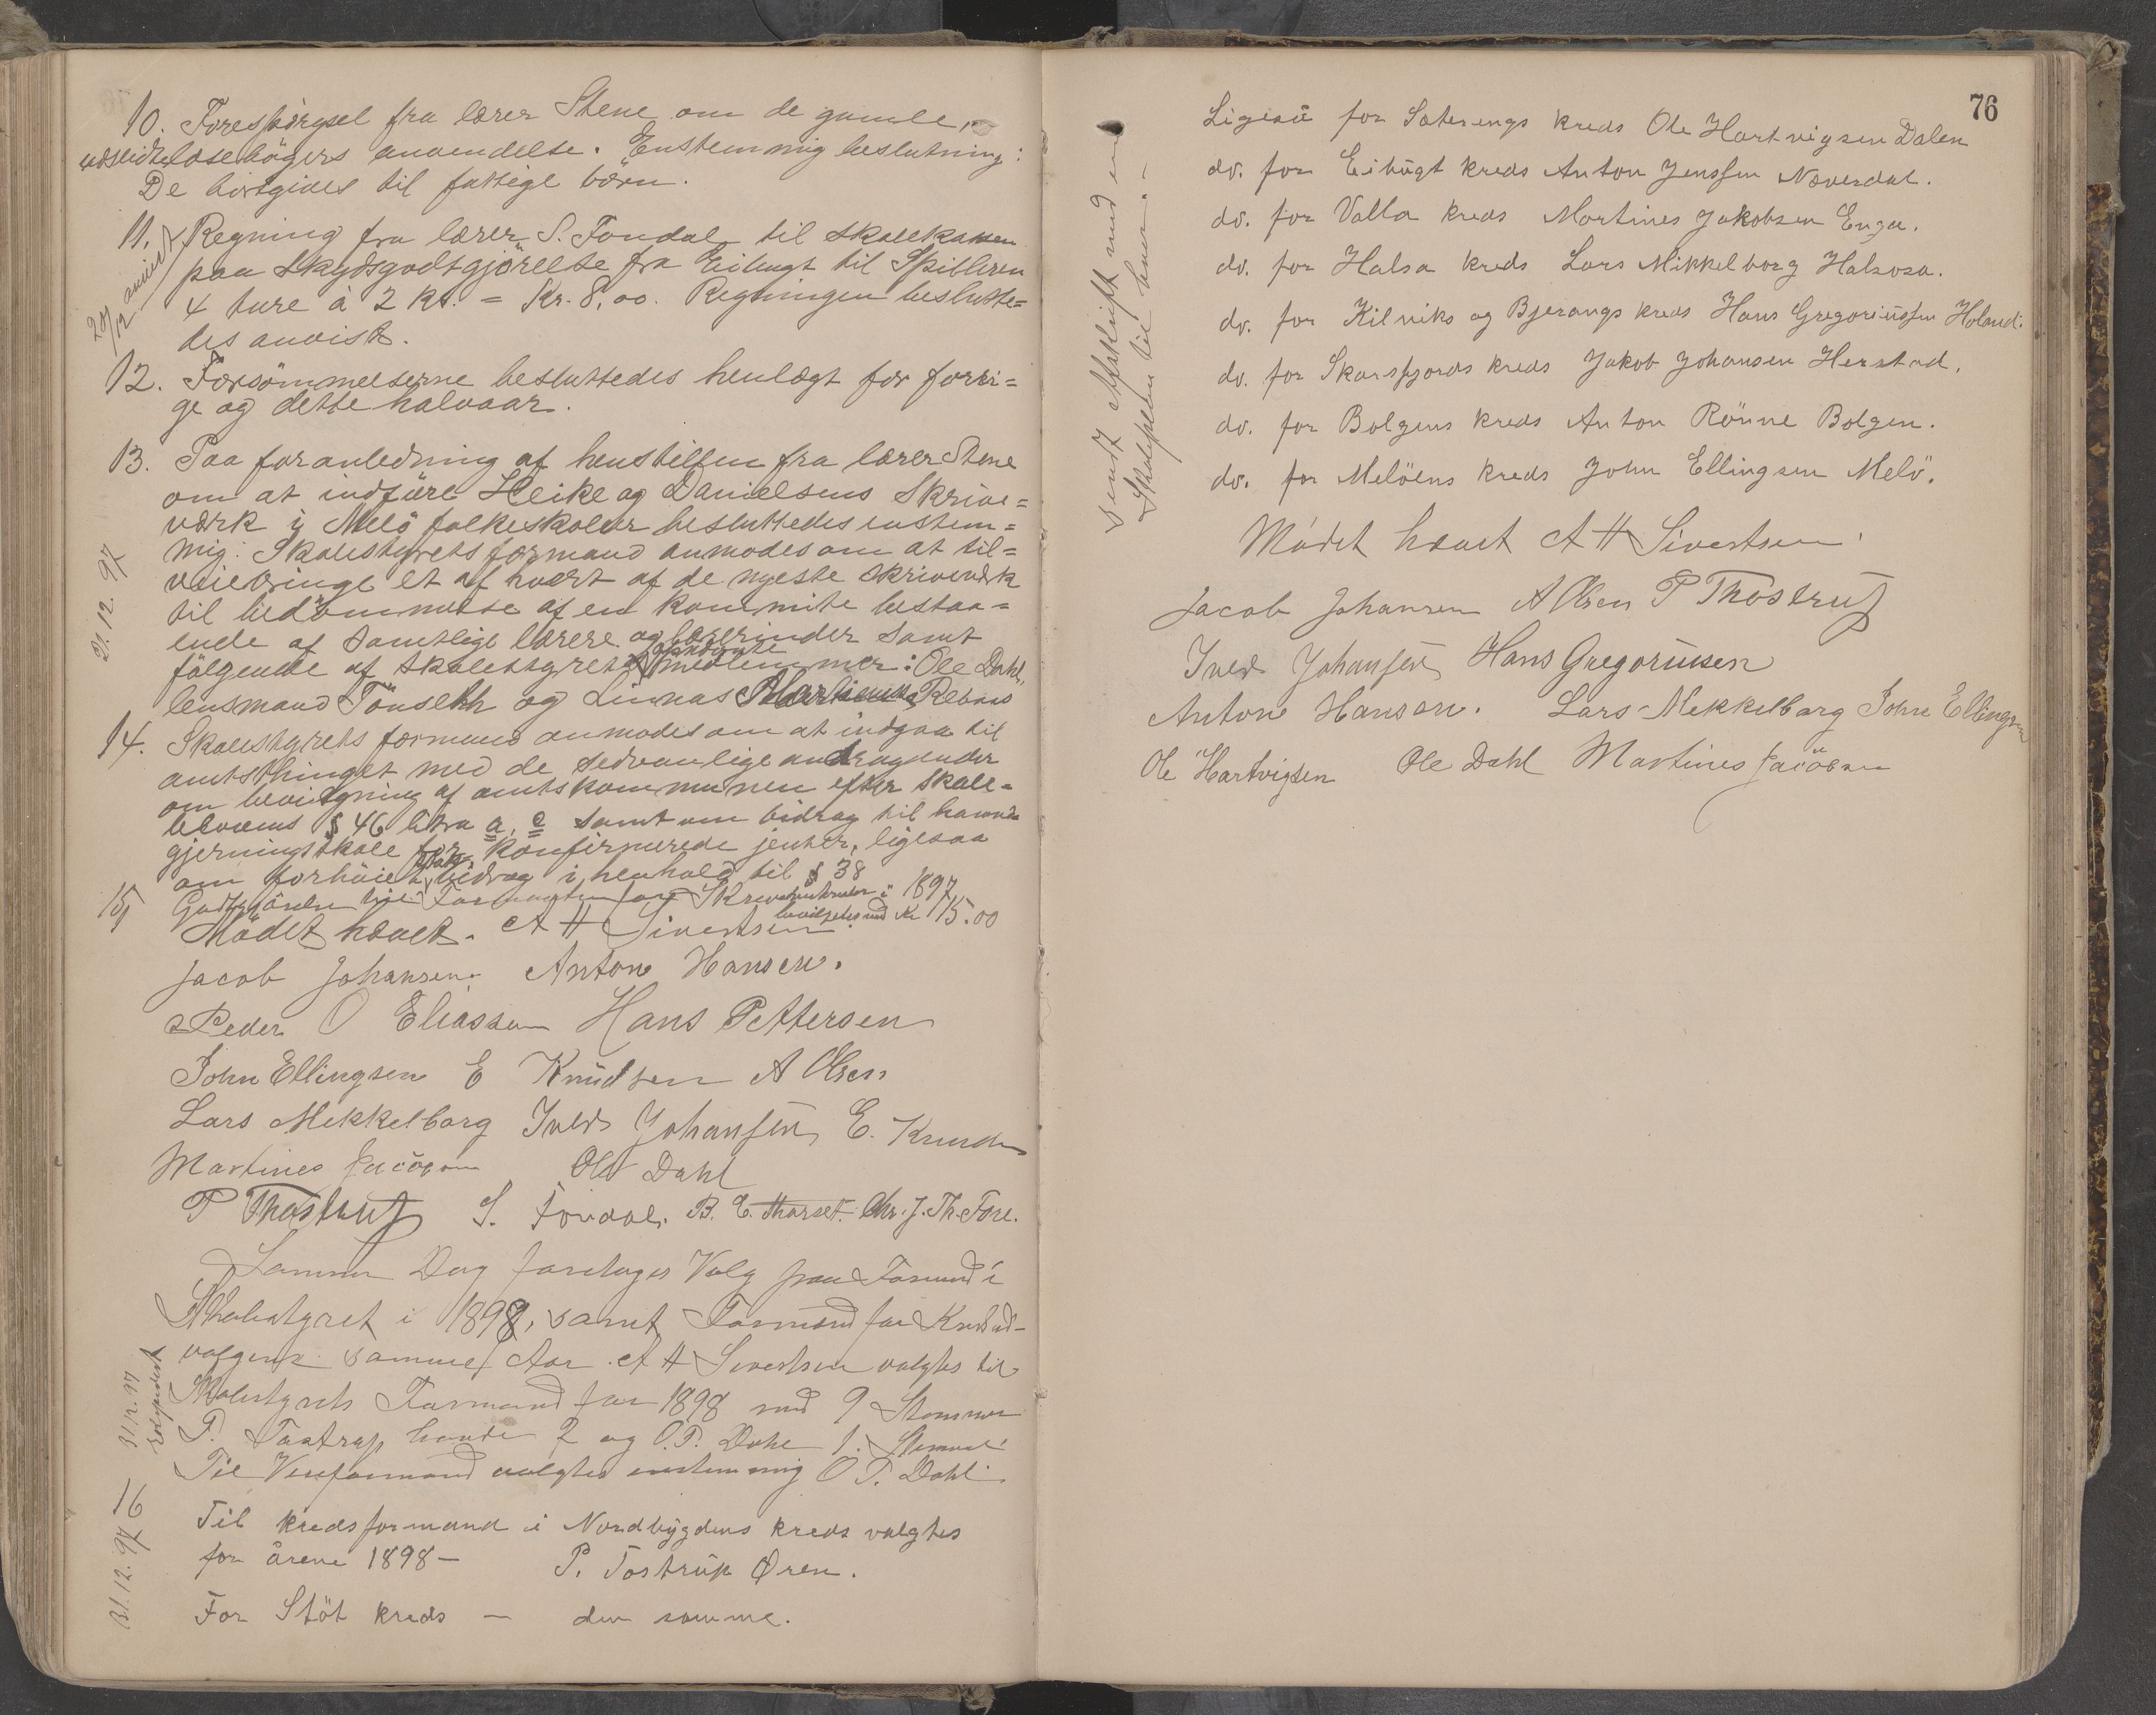 10. Forespörgsel fra lærer Stene om de gamle,
udslidte læsebögers anvendelse. Enstemmig beslutning:
De bortgives til fattige börn.
11. Regning fra lærer S. Fondal til skolekassen
paa skydsgodtgjörelse fra Eibugt til Spilderen
4 ture à 2 kr. = Kr. 8,00. Regningen beslutte=
des anvist.
29/12 anvist
12. Forsömmelserne besluttedes henlagt for forri=
ge og dette halvaar.
13. Paa foranledning af henstillen fra lærer Stene
om at indföre Heike og Danielsens Skrive=
værk i Melö folkeskoler besluttedes enstem=
mig: Skolestyrets formand anmodes om at til=
veiebringe et af hvert af de nyeste skriveværk
til bedömmelse af en kommite bestaa=
ende af samtlige lærere og lærerinder samt
fölgende af skolestyrets medlemmer: Ole Dahl,
lensmand Tönseth og Linnas
31.12.97
14. Skolestyrets formand anmodes om at indgaa til
amtsthinget med de sedvanlige andragender
om bevilgning af amtskommunen efter skole=
lovens § 46 litra a, e samt om bidrag til haand=
gjerningsskole for konfirmerede jenter, ligesaa
om forhöiet bidrag i henhold til § 38
15 Godtgjörelse til Formanden for i 1897
bevilgedes med Kr 115.00
Mödet hævet. A H Sivertsen.
Jacob Johansen. Anton Hansen.
Peder O Eliassen Hans Pettersen
John Ellingsen E Knudsen A Olsen
Lars Mekkelborg Iver Johansen E. Knudsen
Martines Jacobsen Ole Dahl
P Thostrup S. Fondal. B. E. Tharset. Chr. J. Th. Fore.
Samme Dag foretages Valg paa Formand i
Skolestyret i 1898, samt Formand for Kredsud-
valgene samme Aar. A H Sivertsen valgtes til
Skolestyrets Formand for 1898 med 9 Stemmer
P. Tostrup havde 2 og O. P. Dahl 1. Stemme
Til Viseformand valgtes enstemmig O P. Dahl.
31/12.97
16 Til kredsformand i Nordbygdens kreds valgtes
for årene 1898 — P. Tostrup Øren.
For Stöt kreds — den samme.
31.12.97
76
Ligeså for Sæterengs kreds Ole Hartvigsen Dalen
do. for Eibugt kreds Anton Jenssen Næverdal.
do. for Valla kreds Martines Jakobsen Enga.
do. for Halsa kreds Lars Mikkelborg Halsosa.
do. for Kilviks og Bjerangs kreds Hans Gregoriussen Holand.
do. for Skarsfjords kreds Jakob Johansen Herstad.
do. for Bolgens kreds Anton Rönne Bolgen.
do. for Melöens kreds John Ellingsen Melö.
sendt Afskrift med en
Mödet hævet A H Sivertsen.
Jacob Johansen A Olsen P Thostrup
Iver Johansen Hans Gregoriusen
Anton Hansen. Lars Mekkelborg John Ellingsen
Ole Hartvigsen Ole Dahl Martines Jacobsen